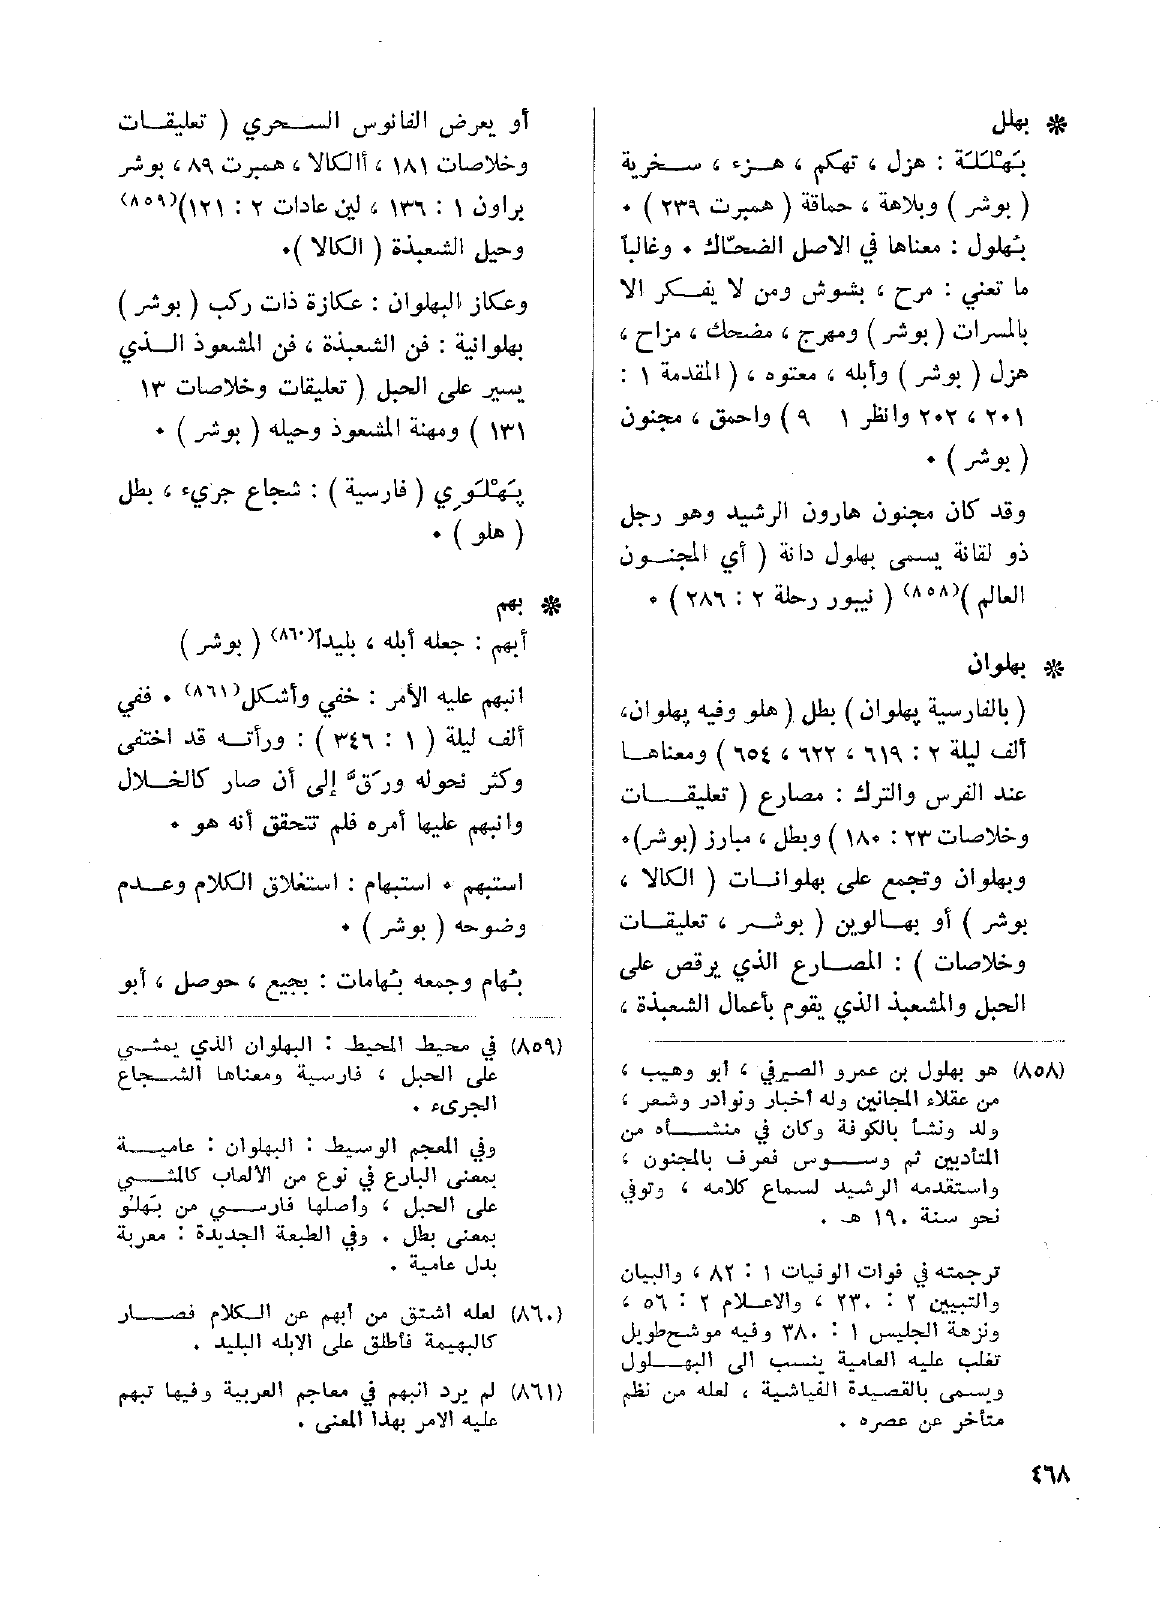 ❊ بهلل
بَهْلَلَة : هزل ، تهكم ، هــزء ، ســخرية
( بوشر ) وبلاهة ، حماقة ( همبرت ٢٣٩ ) ٠
بُهلول : معناها في الاصل الضحّاك ٠ وغالباً
ما تعني : مرح ، بشوش ومن لا يفــكر الا
بالمسرات ( بوشر ) ومهرج ، مضحك ، مزاح ،
هزل ( بوشر ) وأبله ، معتوه ، ( المقدمة ١ :
٢٠١ ، ٢٠٢ وانظر ١ ٩ ) واحمق ، مجنون
( بوشر ) ٠
وقد كان مجنون هارون الرشيد وهو رجل
ذو لقانة يسمى بهلول دانة ( أي المجنــون
العالم )(٨٥٨) ( نيبور رحلة ٢ : ٢٨٦ ) ٠
❊ بهلوان
( بالفارسية پهلوان ) بطل ( هلو وفيه پهلوان،
ألف ليلة ٢ : ٦١٩ ، ٦٢٢ ، ٦٥٤ ) ومعناهــا
عند الفرس والترك : مصارع ( تعليقــات
وخلاصات ٢٣ : ١٨٠ ) وبطل ، مبارز (بوشر)٠
وبهلوان وتجمع على بهلوانــات ( الكالا ،
بوشر ) أو بهــالوين ( بوشــر ، تعليقــات
وخلاصات ) : المصــارع الذي يرقص على
الحبل والمشعبذ الذي يقوم بأعمال الشعبذة ،
أو يعرض الفانوس الســحري ( تعليقــات
وخلاصات ١٨١ ، أالكالا ، همبرت ٨٩ ، بوشر
براون ١ : ١٣٦ ، لين عادات ٢ : ١٢١)(٨٥٩)
وحيل الشعبذة ( الكالا )٠
وعكاز البهلوان : عكازة ذات ركب ( بوشر )
بهلوانية : فن الشعبذة ، فن المشعوذ الــذي
يسير على الحبل ( تعليقات وخلاصات ١٣
١٣١ ) ومهنة المشعوذ وحيله ( بوشر ) ٠
پَهْلَوِي ( فارسية ) : شجاع جريء ، بطل
( هلو ) ٠
❊ بهم
أبهم : جعله أبله ، بليداً(٨٦٠) ( بوشر )
انبهم عليه الأمر : خفي وأشكل(٨٦١) ٠ ففي
ألف ليلة ( ١ : ٣٤٦ ) : ورأتــه قد اختفى
وكثر نحوله ورقّ إلى أن صار كالخــلال
وانبهم عليها أمره فلم تتحقق أنه هو ٠
استبهم ٠ استبهام : استغلاق الكلام وعــدم
وضوحه ( بوشر ) ٠
بُهام وجمعه بُهامات : بجيع ، حوصل ، أبو
(٨٥٨) هو بهلول بن عمرو الصيرفي ، أبو وهيب ،
من عقلاء المجانين وله أخبار ونوادر وشعر ،
ولد ونشأ بالكوفة وكان في منشــأه من
المتأدبين ثم وســوس فعرف بالمجنون ،
واستقدمه الرشيد لسماع كلامه ، وتوفي
نحو سنة ١٩٠ هـ .
ترجمته في فوات الوفيات ١ : ٨٢ ، والبيان
والتبيين ٢ : ٢٣٠ ، والاعــلام ٢ : ٥٦ ،
ونزهة الجليس ١ : ٣٨٠ وفيه موشح طويل
تغلب عليه العامية ينسب الى البهــلول
ويسمى بالقصيدة الفياشية ، لعله من نظم
متأخر عن عصره .
(٨٥٩) في محيط المحيط : البهلوان الذي يمشــي
على الحبل ، فارسية ومعناها الشــجاع
الجرىء .
وفي المعجم الوسيط : البهلوان : عاميــة
بمعنى البارع في نوع من الألعاب كالمشــي
على الحبل ، وأصلها فارســي من بَهلُو
بمعنى بطل . وفي الطبعة الجديدة : معربة
بدل عامية .
(٨٦٠) لعله اشتق من أبهم عن الــكلام فصــار
كالبهيمة فأطلق على الابله البليد .
(٨٦١) لم يرد انبهم في معاجم العربية وفيها تبهم
عليه الامر بهذا المعنى .
٤٦٨